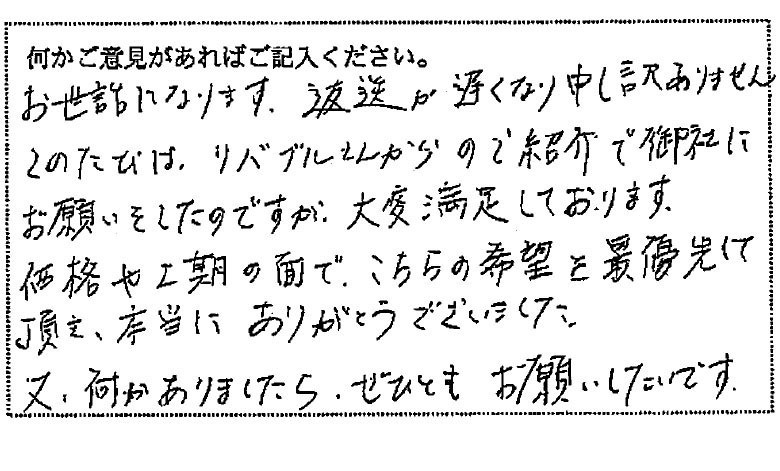 何かご意見があればご記入ください。
お世話になります。返送が遅くなり申し訳ありません
このたびは、リバブルさんからのご紹介で御社に
お願いをしたのですが、大変満足しております。
価格や工期の面で、こちらの希望を最優先して
頂き、本当にありがとうございました。
又、何かありましたら、ぜひともお願いしたいです。